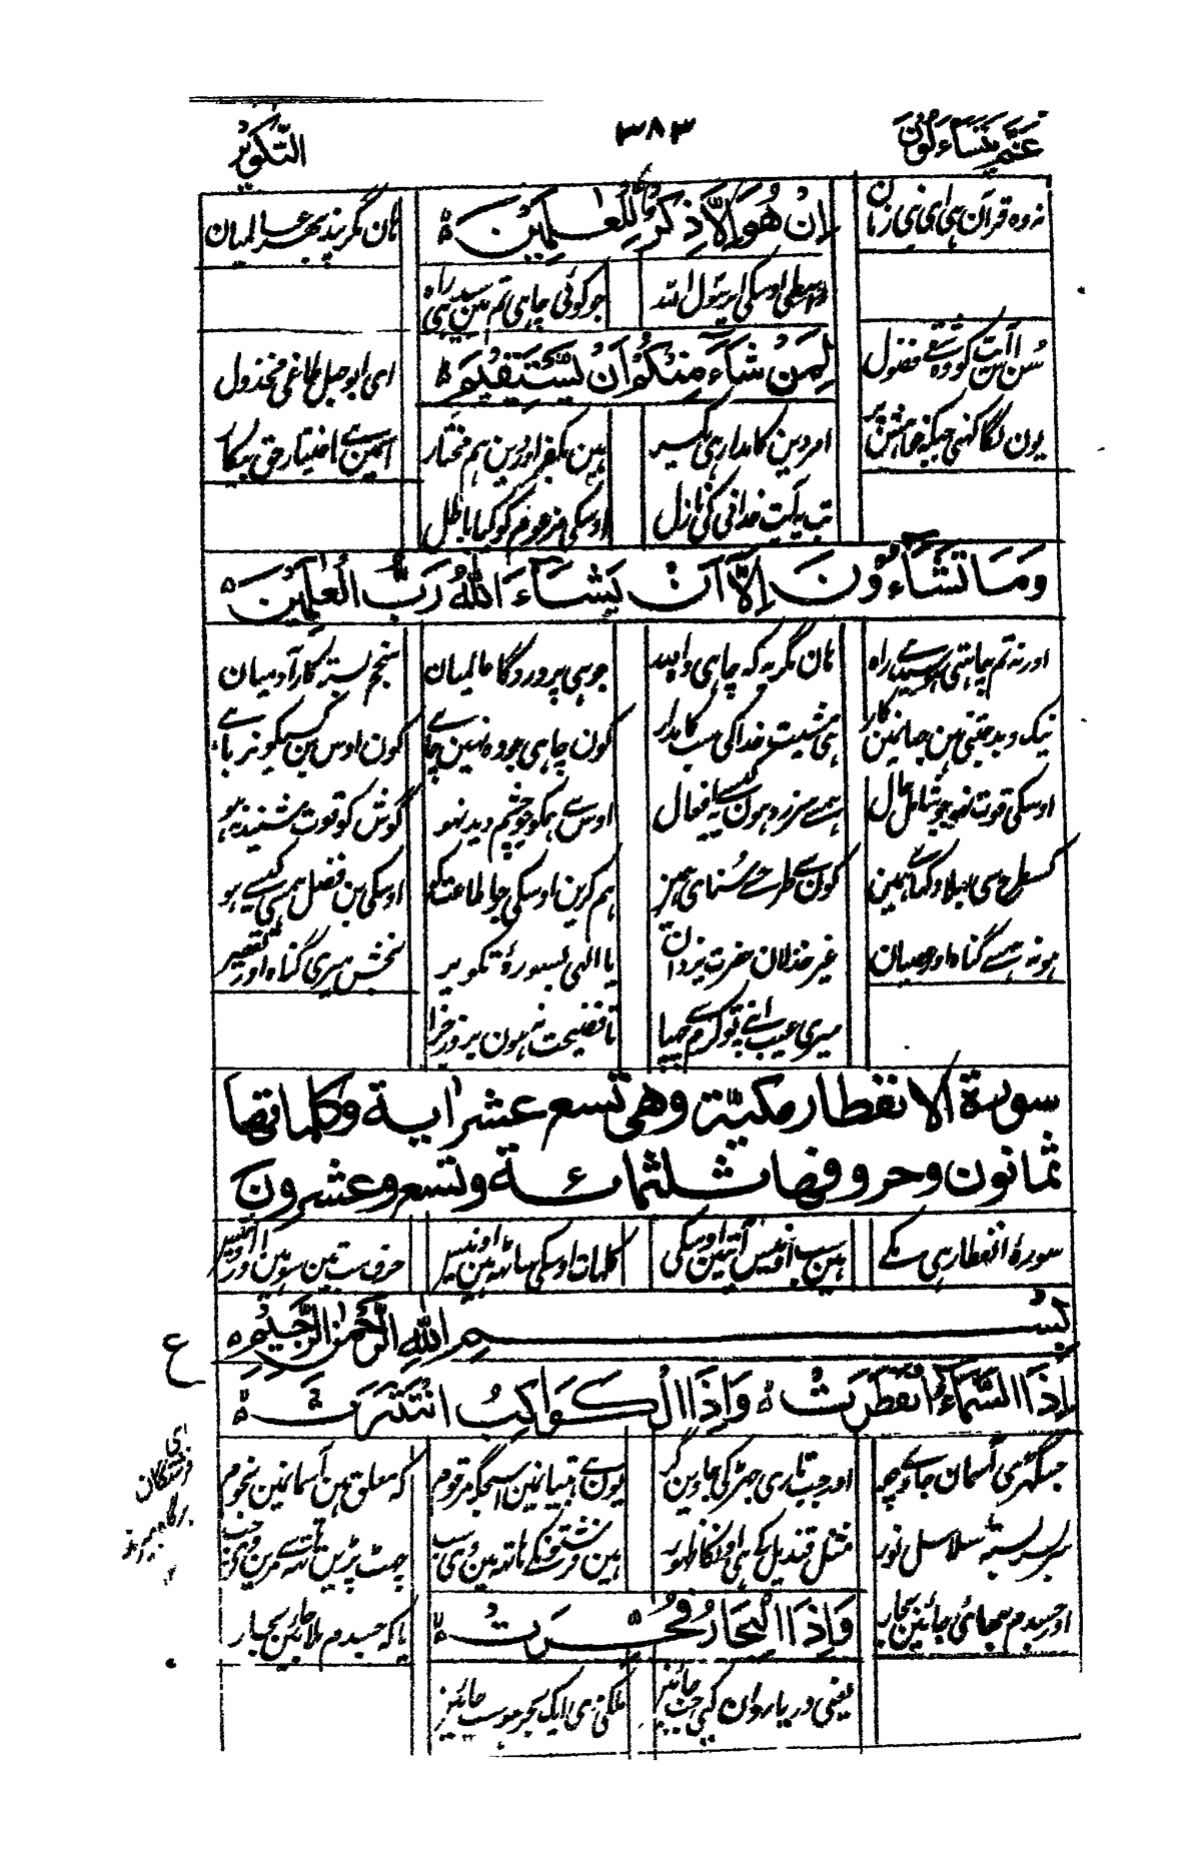 عَمَّ يَتَسَاءَلُونَ ٣٨٣ التَّكْوِيْر
نہ وہ قرآن ہی ای نبی زمان اِنْ هُوَ اِلَّا ذِكْرٌ لِّلْعٰلَمِيْنَ ہان مگر پند بہر عالمیان
واسطی اوسکی ای رسول اللہ جو کوئی چاہی تم مین سیدہی راہ
لِمَنْ شَآءَ مِنْكُمْ اَنْ يَّسْتَقِيْمَ
سُن اس آیت کو وہ فضول ای ابوجہل طاغی مخذول
یون لگا کہنی جبکہ خواہش پر امر دین کا مدار ہی یکسر ہین بکفر اور دین ہم مختار اسمین ہے اختیار حق بیکار
تب یہ آیت خدا نی کی نازل اوسکی مزعوم کو کیا باطل
وَمَا تَشَآءُوْنَ اِلَّآ اَنْ يَّشَآءَ اللّٰهُ رَبُّ الْعٰلَمِيْنَ
اور نہ تم چاہتی ہو سیدہی راہ ہان مگر یہ کہ چاہی واللہ جو ہی پروردگار عالمیان منجملہ کار آدمیان
نیک و بد جتنی ہین جہانمین کار ہی مشیت خدا کی سب کا مدار کون چاہی جو وہ نہین چاہے کون اوس بن کسیکو نرباہے
اوسکی قوت نہو جو شامل حال ہمسے سرزد ہون کیسے یہ افعال اوس سے ہمکو جو چشم دید نہو گوش کو قوت شنید نہو
کسطرح سی بہلا دکہائے ہمین کون سے طرح سے سُنائی ہمین ہم کرین اوسکی جو اطاعت کو اوسکی بن فضل ہمسی کیسے ہو
ہو نہ ہمسے گناہ اور عصیان غیر خذلان حضرت یزدان یا الٰہی بسورۂ تکویر بخش میری گناہ اور تقصیر
میری عیب اپنے تو کرم سے چہپا تا فضیحت نہ ہون بروز جزا
سورة الانفطار مكيّة وهى تسع عشر اية وكلماتها
ثمانون وحروفها ثلثمائة وتسع وعشرون
سورۂ انفطار ہی مکے ہین سب اونیس آیتین اوسکی کلمات اوسکی ساٹہہ ہین اونیس حرف سب تین سو ہین اور انتیس
بِسْمِ اللّٰهِ الرَّحْمٰنِ الرَّحِيْمِ
ع
اِذَا السَّمَآءُ انْفَطَرَتْ وَاِذَا الْكَوَاكِبُ انْتَثَرَتْ
جسگہڑی آسمان جاوے چر اور جب تاری جہڑ کی جاوین گر یون ہے تبیانمین اسجگہ مرقوم کہ معلق ہین آسمانمین نجوم
سربسر بستہ سلاسل نور مثل قندیل کے ہی اونکا ظہور ہین فرشتونکے ہاتہہ مین وی سب
اور جسدم بہائی جائین بحار وَاِذَا الْبِحَارُ فُجِّرَتْ یا کہ جسدم ملا جائین بحار
یعنی دریا روان کیی جائین ملکی وی ایک بحر ہو سب جائین
ای فرشتگان